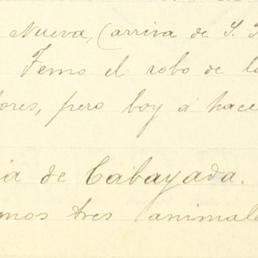 Nueva, (arriva de S. J
Temo el robo de la
ores, pero hoy á hace
ia de Cabayada.
mos tres animal